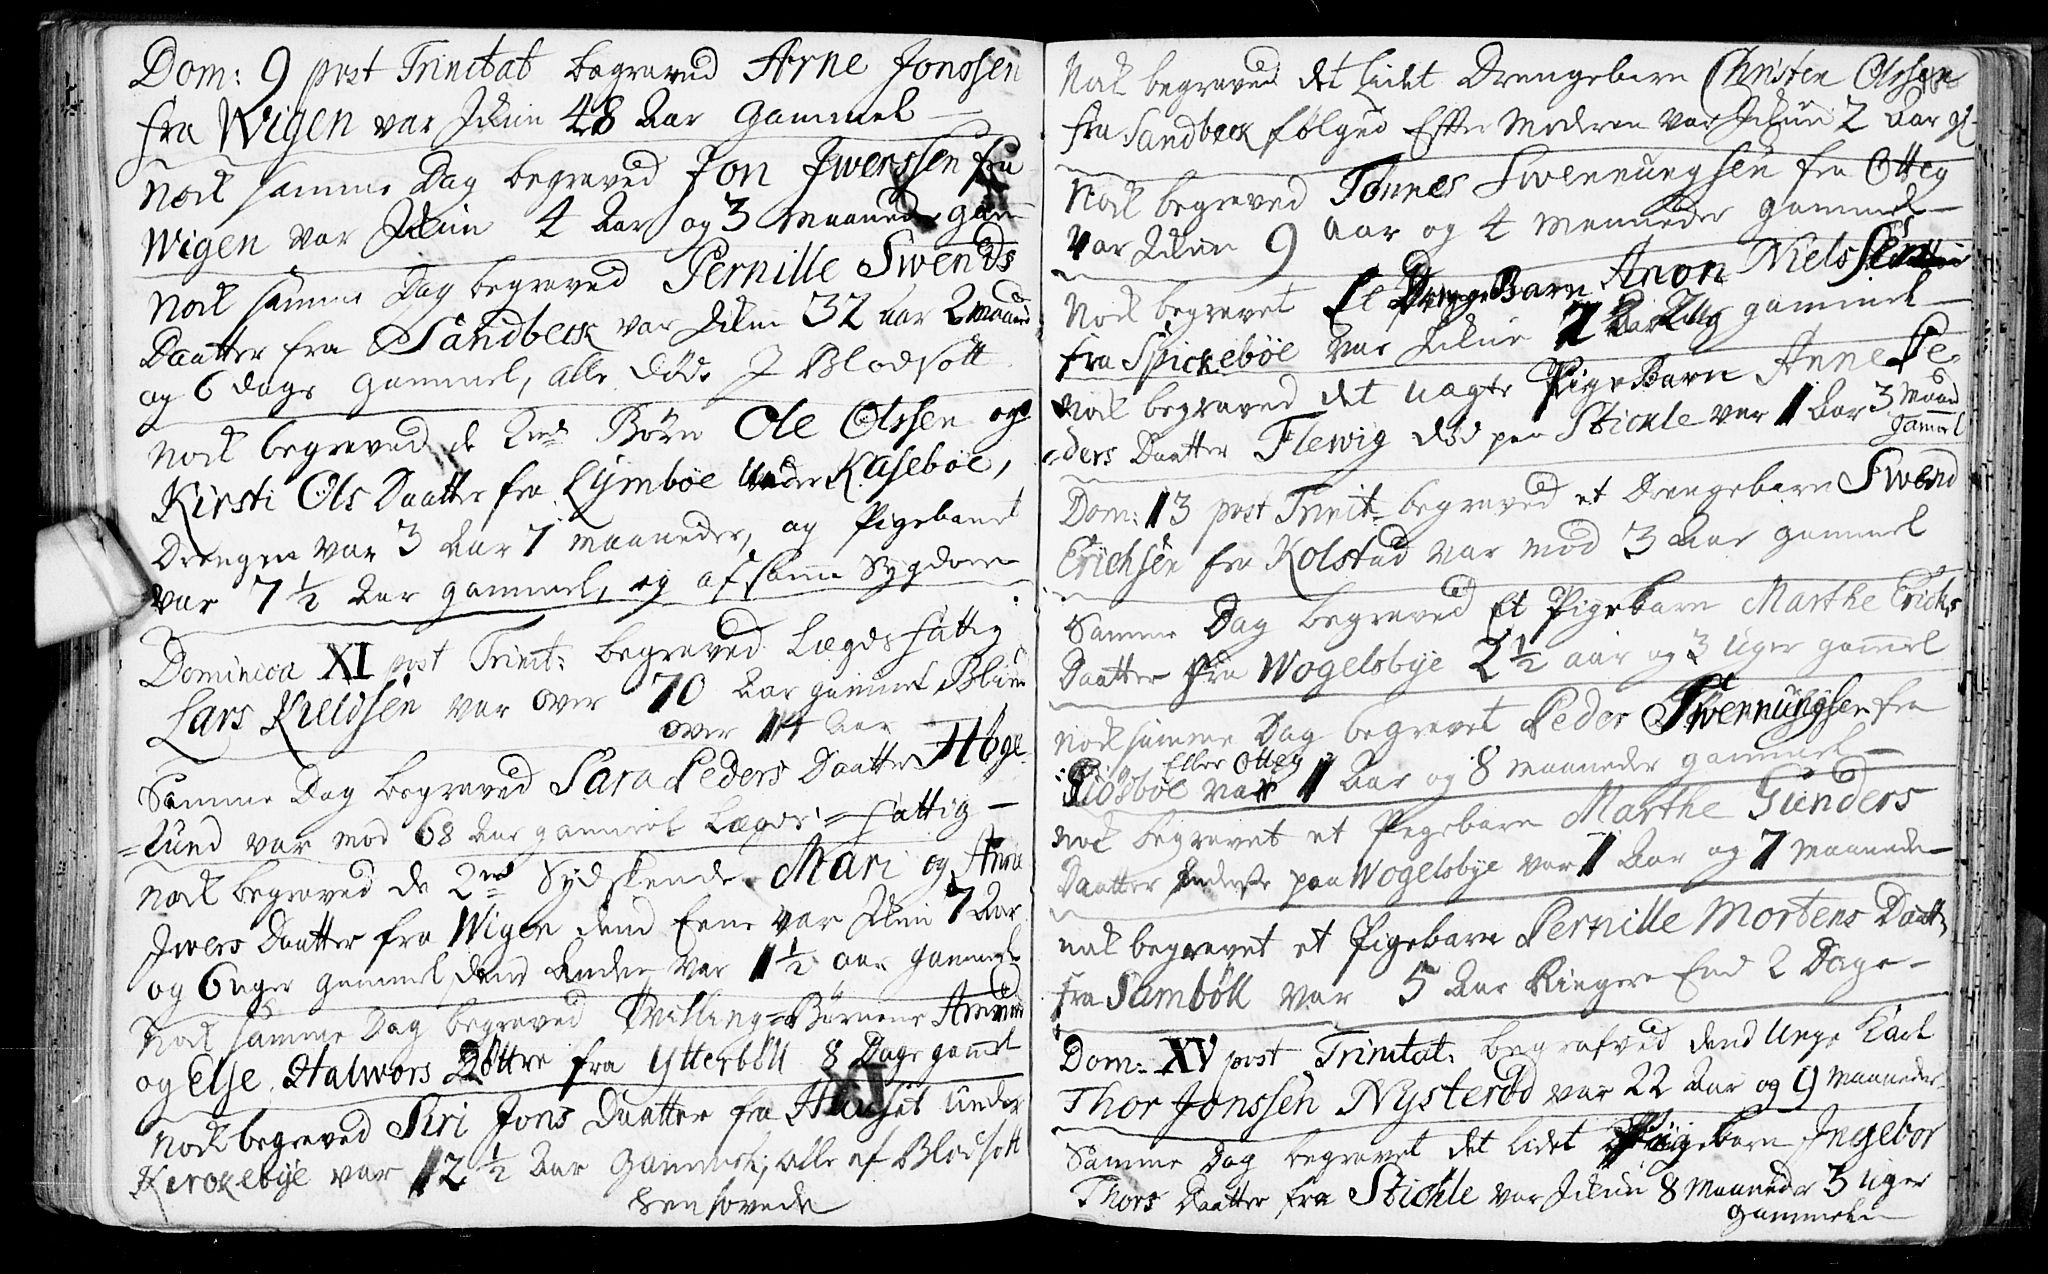 Dom: 9 post Trinitat begraved Arne Jonssen
fra Wigen var 48 Aar Gammel
Nock samme Dag begraved Jon Iwerssen fra
Wigen var 4 Aar og 3 Maaneder gam
Nock samme Dag begraved Pernille Swends
Daatter fra Sandbeck var 32 aar 2 Maaned
og 6 dage gammel, alle døde I Blodsott
Nock begraved de 2nd Børn Ole Olssen og
Kirsti Ols Daatter fra Lijmboe under Kaseboe,
Drengen var 3 Aar 7 Maaneder, og Pigebarnet
var 7 1/2 Aar gammel, og af samme Sygdom
Dominica XI post Trinit: begraved Lægdsfattig
Lars Kieldsen var over 70 Aar gammel Blind
over 14 Aar
Samme Dag begraved Sara Peders Daatter Høge-
=lund var mod 68 Aar gammel Lægds=fattig
Nock begraved de 2nd Sydskende Mari og Anna
Iwers Daatter fra Wigen dend Eene var 7 Aar
og 6 uger gammel dend Anden var 1 1/2 aar gammel
Nock samme Dag begraved Tvilling=Børnene
og Else Halwors Døttre fra Ytterböll 8 Dage gamel
Nock begraved Siri Jons Daatter fra Huuset under
Kirckebije var 12 1/2 Aar Gammel, alle af Blodsott
hensovede
Nock begraved det lidet Drengebarn Christen Olssen
fra Sandbeck følgede Efter Moderen var 2 Aar gl
Nock begraved Tønnes Swennungsen fra Otteg
var 9 Aar og 4 Maaneder gammel
Nock begravet Et DrengeBarn Anon Nielssen
fra Spickeboe var 7 gammel
Nock begraved det uægte PigeBarn Anne Pe-
=ders Daatter Flewig død paa Stichle var 1 Aar 3 Maand
Gammel
Dom: 13 post Trinit begraved et Drengebarn Swend
Erichsen fra Kolstad var mod 3 Aar gammel
Samme Dag begraved Et Pigebarn Marthe Erichs
Daatter fra Wogelsbye 2 1/2 aar og 3 Uger gamel
Nock samme Dag begravet Peder Swennungsen fra
Eller Otteg
Siösböe var 1 Aar og 8 Maaneder gammel
Nock begravet et Pigebarn Marthe Gunders
Daatter paa Wogelsbye var 1 Aar og 7 Maaneder
nock begravet et Pigebarn Pernille Mortens Daatt
fra Samböll var 5 Aar Ringere End 2 Dage
Dom: XV post Trinitat: begrafved dend Unge Karl
Thor Jonssen Nysterød var 22 Aar og 9 Maaneder
Samme Dag begravet det lidet Pigebarn Ingebor
Thors Daatter fra Stichle var 8 Maaneder 3 Uger
gammel